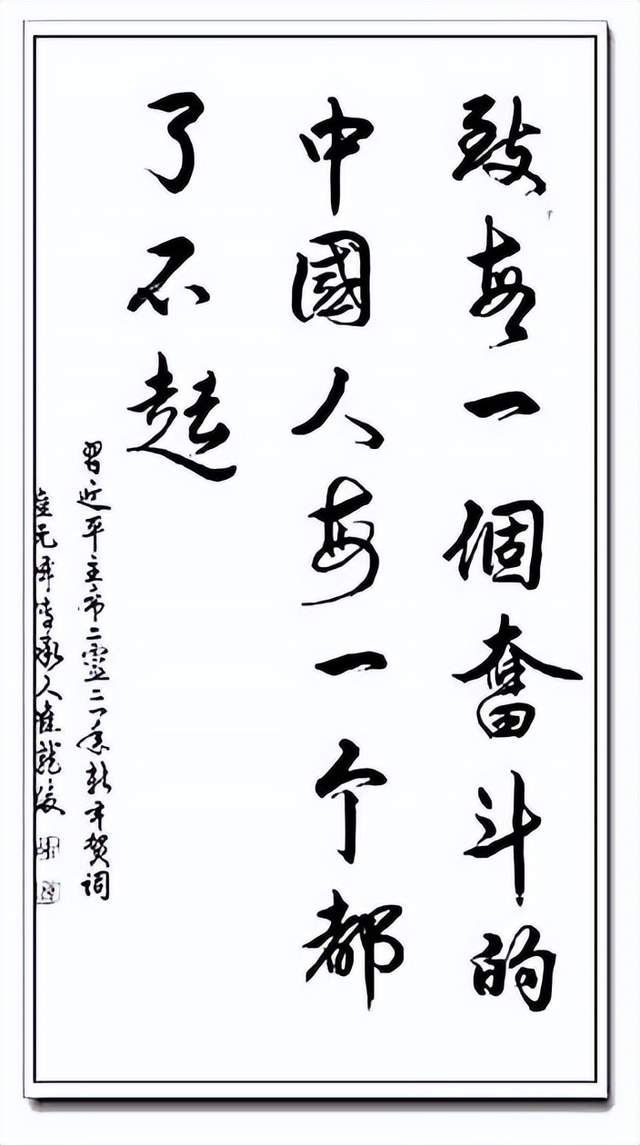 致每一個奮斗的
中國人每一个都
了不起
習近平主席二零二一年新年贺词
传承人崔龍俊